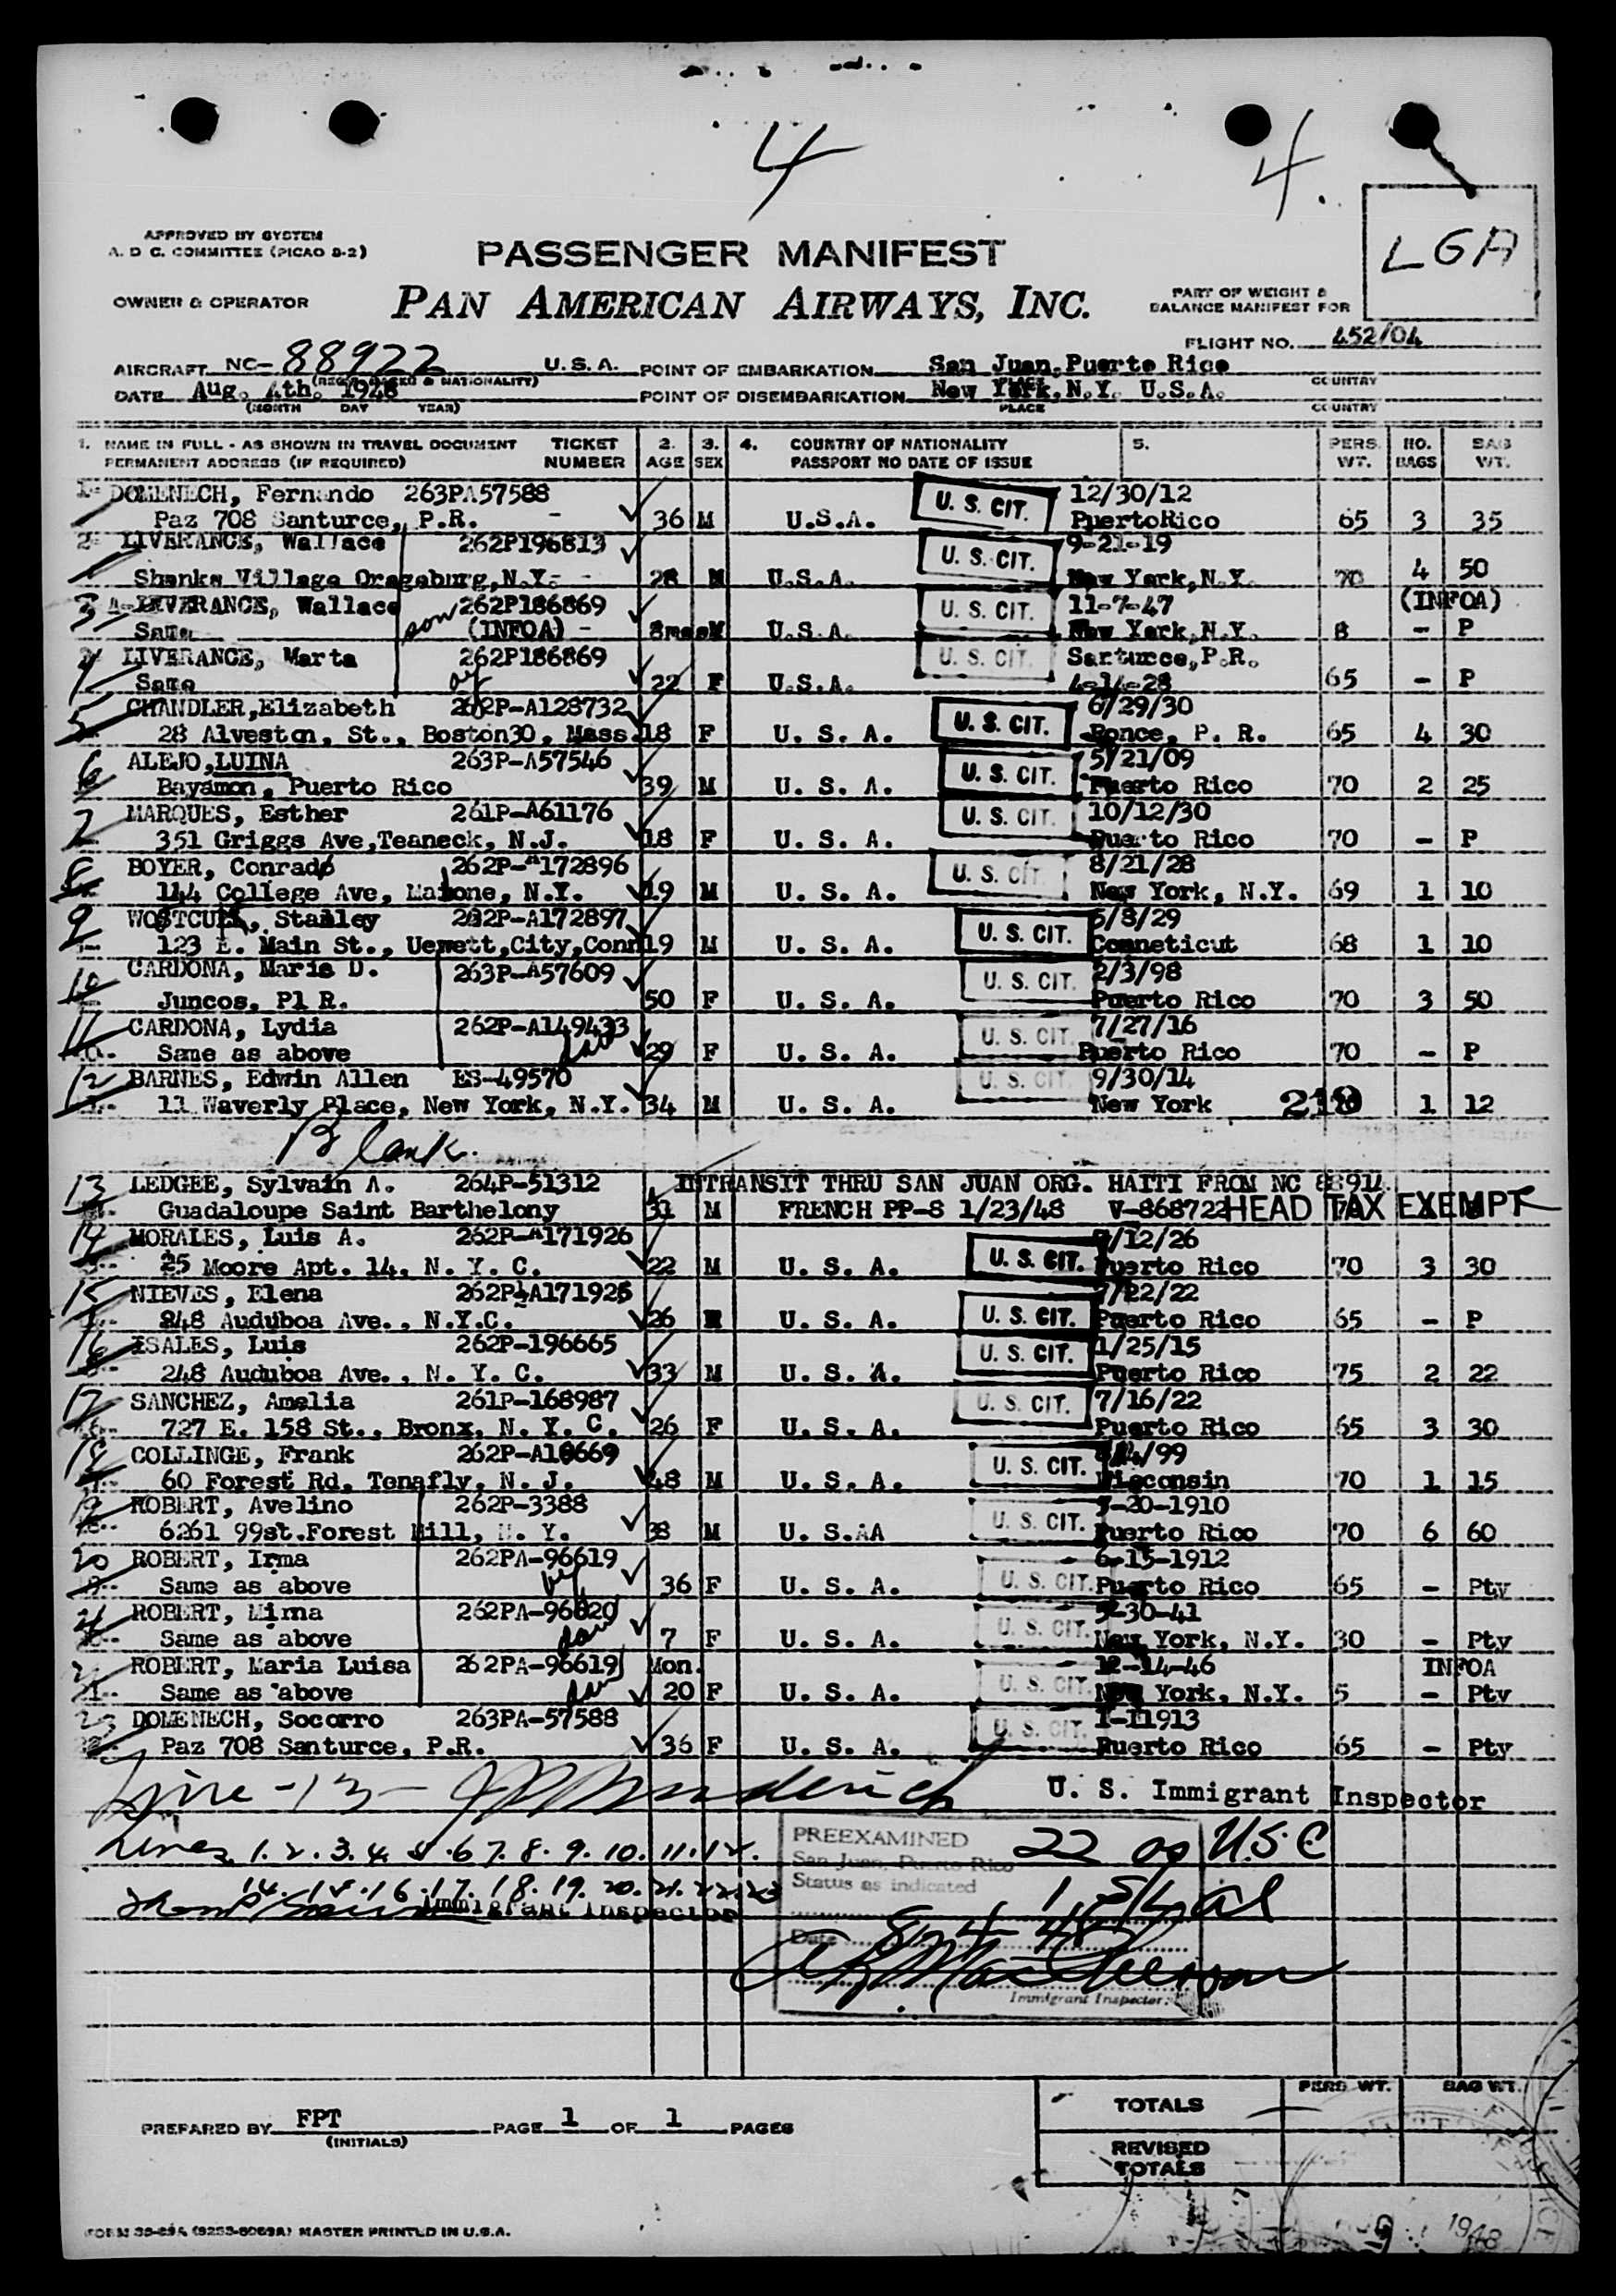 4 4.
APPROVED BY SYSTEM
A. D C. COMMITTEE (PICAO S-2)
PASSENGER MANIFEST
LGA
OWNER & OPERATOR
PAN AMERICAN AIRWAYS, INC.
PART OF WEIGHT &
BALANCE MANIFEST FOR
FLIGHT NO. 452/04
AIRCRAFT NC- 88922 U.S.A. POINT OF EMBARKATION San Juan, Puerto Rico
(REG'D MARKS & NATIONALITY) PLACE COUNTRY
DATE Aug. 4th. 1948 POINT OF DISEMBARKATION New York, N.Y. U.S.A.
(MONTH DAY YEAR) PLACE COUNTRY
1. NAME IN FULL - AS SHOWN IN TRAVEL DOCUMENT TICKET 2. 3. 4. COUNTRY OF NATIONALITY 5. PERS. NO. BAG
PERMANENT ADDRESS (IF REQUIRED) NUMBER AGE SEX PASSPORT NO DATE OF ISSUE WT. BAGS WT.
1 DOMENECH, Fernando 263PA57588 U. S. CIT. 12/30/12
Paz 708 Santurce, P.R. - 36 M U.S.A. PuertoRico 65 3 35
2 LIVERANCE, Wallace 262P196813 U. S. CIT. 9-21-19
Shanks Village Orageburg, N.Y. - - 28 M U.S.A. New York, N.Y. 70 4 50
3 LIVERANCE, Wallace son 262P186869 U. S. CIT. 11-7-47 (INFOA)
Same (INFOA) - 8mos M U.S.A. New York, N.Y. 8 - P
4 LIVERANCE, Marta 262P186869 U. S. CIT. Santurce, P.R.
Same wf 22 F U.S.A. 4-14-28 65 - P
5 CHANDLER, Elizabeth 262P-A128732 U. S. CIT. 6/29/30
28 Alveston, St., Boston30, Mass. 18 F U. S. A. Ponce, P. R. 65 4 30
6 ALEJO, LUINA 263P-A57546 U. S. CIT. 5/21/09
Bayamon, Puerto Rico 39 M U. S. A. Puerto Rico 70 2 25
7 MARQUES, Esther 261P-A61176 U. S. CIT. 10/12/30
351 Griggs Ave, Teaneck, N.J. 18 F U. S. A. Puerto Rico 70 - P
8 BOYER, Conrado 262P-A172896 U. S. CIT. 8/21/28
144 College Ave, Malone, N.Y. 19 M U. S. A. New York, N.Y. 69 1 10
9 Stanley 262P-A172897 U. S. CIT. 5/8/29
123 E. Main St., Uewett, City, Conn 19 M U. S. A. Conneticut 68 1 10
10 CARDONA, Maria D. 263P-A57609 U. S. CIT. 2/3/98
Juncos, Pl R. 50 F U. S. A. Puerto Rico 70 3 50
11 CARDONA, Lydia 262P-A149433 U. S. CIT. 7/27/16
Same as above dau 29 F U. S. A. Puerto Rico 70 - P
12 BARNES, Edwin Allen ES-49570 U. S. CIT. 9/30/14
11 Waverly Place, New York, N.Y. 34 M U. S. A. New York 1 12
Blank.
13 LEDGEE, Sylvain A. 264P-51312 INTRANSIT THRU SAN JUAN ORG. HAITI FROM NC 88914
Guadaloupe Saint Barthelony 31 M FRENCH PP-8 1/23/48 V-868722 HEAD TAX EXEMPT
14 MORALES, Luis A. 262P-A171926 U. S. CIT. 7/12/26
25 Moore Apt. 14. N. Y. C. 22 M U. S. A. Puerto Rico 70 3 30
15 NIEVES, Elena 262P-A171925 U. S. CIT. 7/22/22
248 Auduboa Ave., N.Y.C. 26 U. S. A. Puerto Rico 65 - P
16 ISALES, Luis 262P-196665 U. S. CIT. 1/25/15
248 Auduboa Ave., N. Y. C. 33 M U. S. A. Puerto Rico 75 2 22
17 SANCHEZ, Amelia 261P-168987 U. S. CIT. 7/16/22
727 E. 158 St., Bronx, N. Y. C. 26 F U. S. A. Puerto Rico 65 3 30
18 COLLINGE, Frank 262P-A18669 U. S. CIT. /99
60 Forest Rd, Tenafly, N. J. 48 M U. S. A. Wisconsin 70 1 15
19 ROBERT, Avelino 262P-3388 U. S. CIT. -20-1910
6261 99st. Forest Hill, N. Y. 38 M U. S.AA Puerto Rico 70 6 60
20 ROBERT, Irma 262PA-96619 6-15-1912
Same as above wf 36 F U. S. A. U. S. CIT. Puerto Rico 65 - Pty
21 ROBERT, Mirna 262PA-96620 -30-41
Same as above dau 7 F U. S. A. U. S. CIT. New York, N.Y. 30 - Pty
ROBERT, Maria Luisa 262PA-96619 Mon. 12-14-46 INFOA
Same as above dau 20 F U. S. A. U. S. CIT. New York, N.Y. 5 - Pty
23 DOMENECH, Socorro 263PA-57588 1-11913
Paz 708 Santurce, P.R. 36 F U. S. A. U. S. CIT. Puerto Rico 65 - Pty
Line -13- U. S. Immigrant Inspector
Lines 1. 2. 3. 4. 5. 6 7. 8. 9. 10. 11. 12. PREEXAMINED 22 as U.S.C
San Juan, Puerto Rico
14. 15. 16. 17. 18. 19. 20. 21. 22. 23 Status as indicated
Immigrant Inspector 1
Date 8-4-48
Immigrant Inspector.
TOTALS PERS WT. BAG WT.
PREPARED BY FPT PAGE 1 OF 1 PAGES
(INITIALS)
REVISED
TOTALS
FORM MASTER PRINTED IN U.S.A.
1948